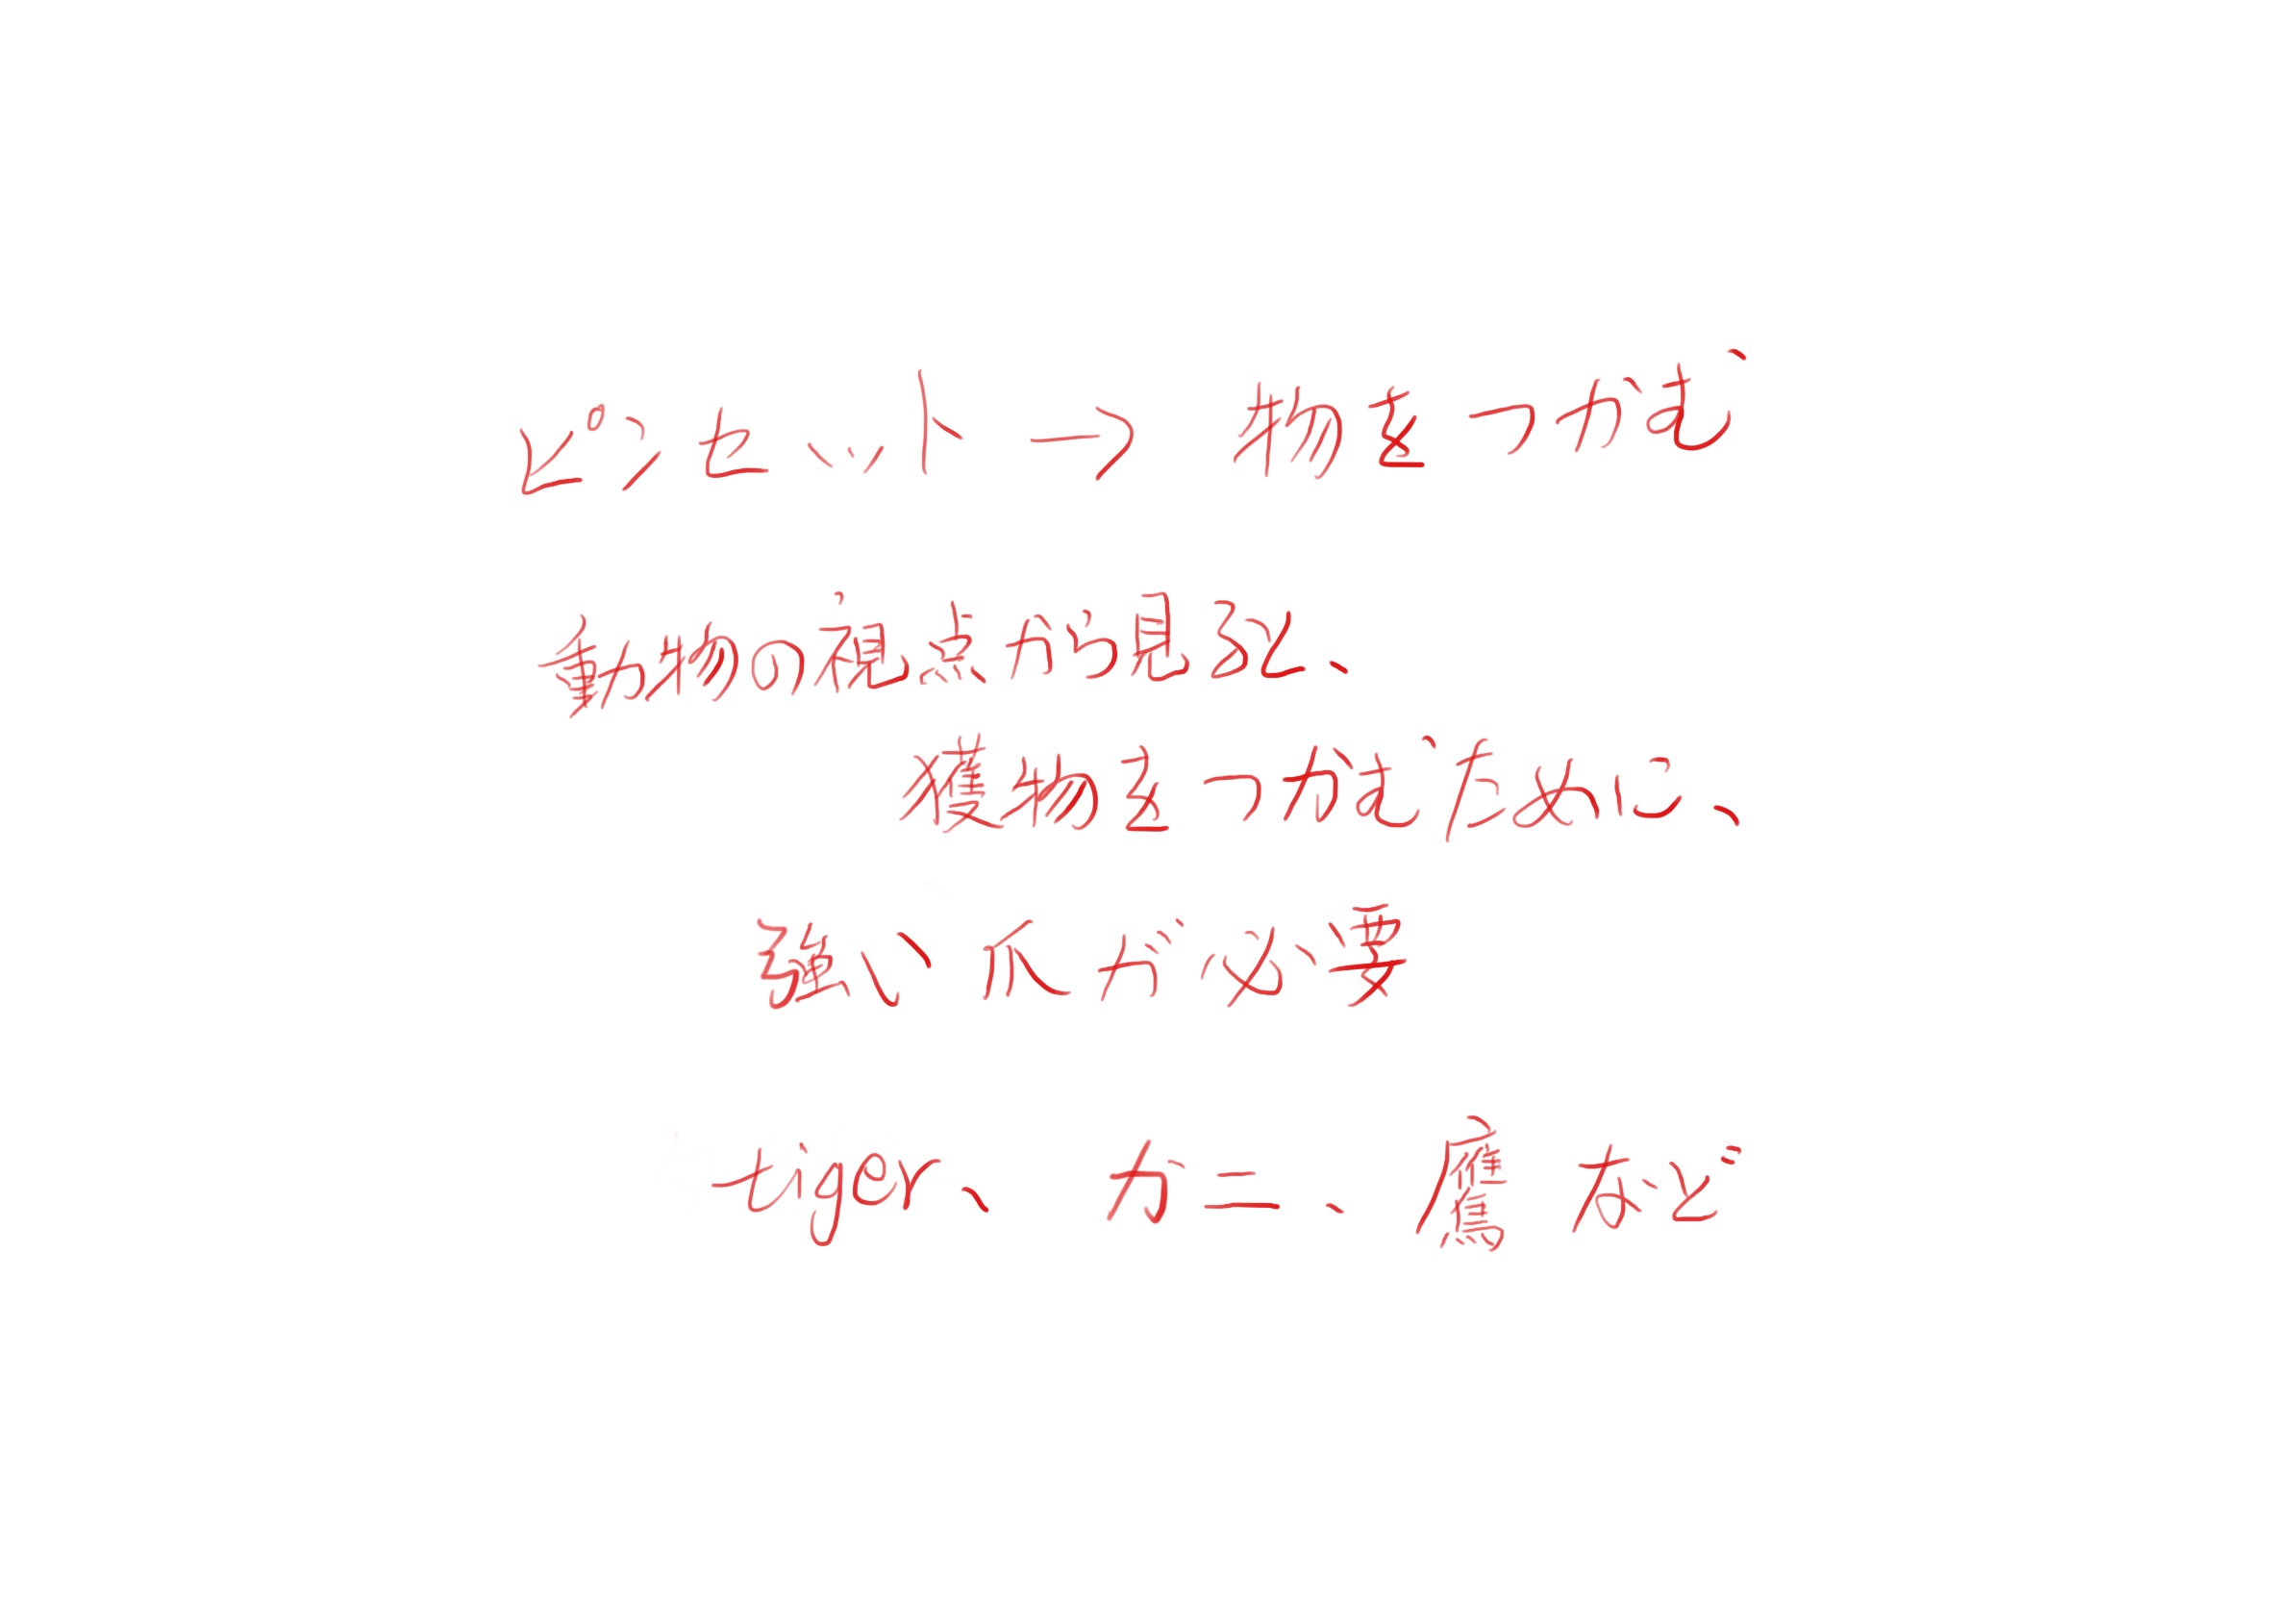 ピンセット → 物をつかむ
動物の視点から見ると、
獲物をつかむために、
強い爪が必要
tiger、カニ、鷹など